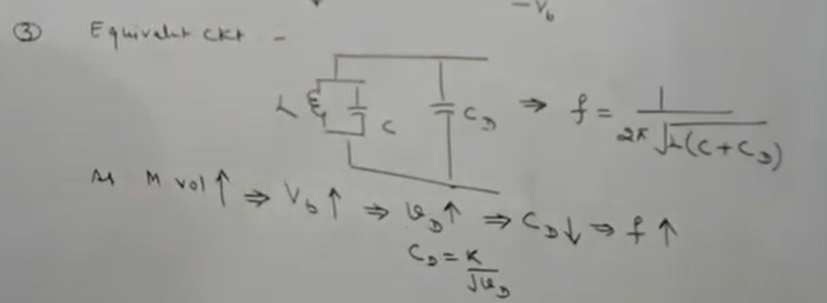 -V_b
③ Equivalent ckt -
L C C_D ⇒ f = 1 / 2π √L(C + C_D)
As M vol ↑ ⇒ V_b ↑ ⇒ v_D ↑ ⇒ C_D ↓ ⇒ f ↑
C_D = K / √v_D